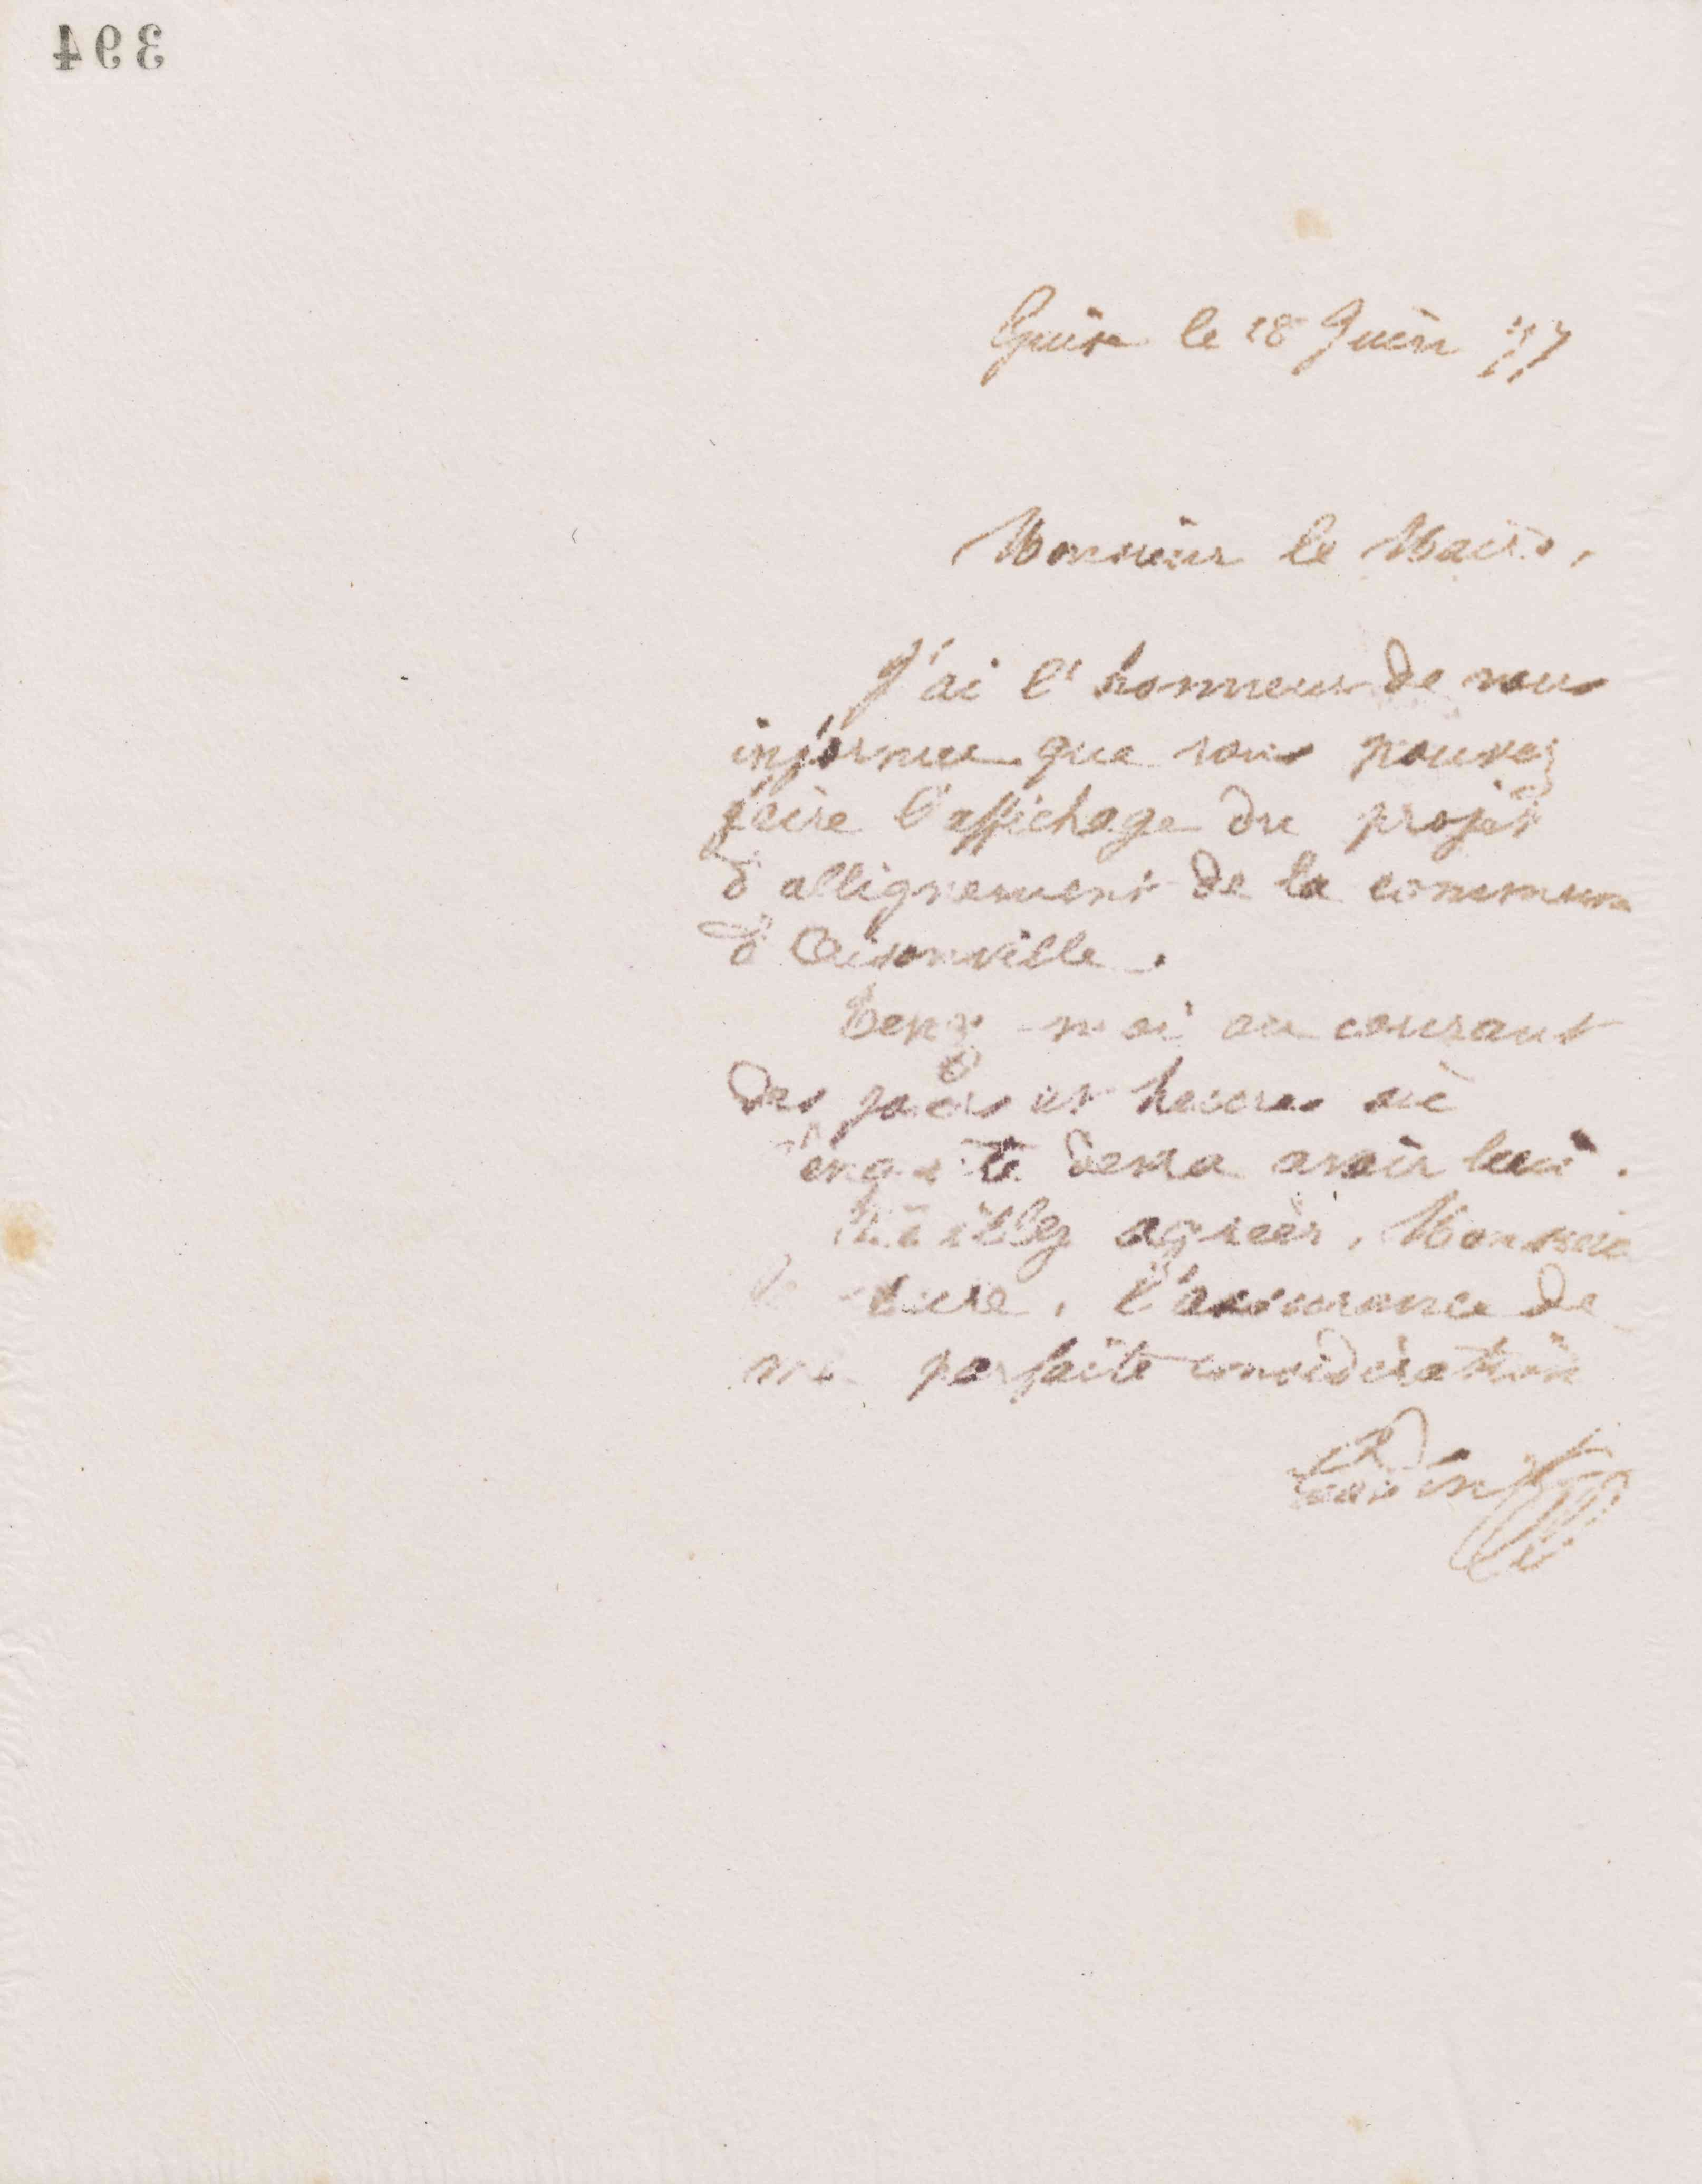 394
Guise le 18 Juin 77
Monsieur le Maire,
J'ai l'honneur de vous
informer que vous pouvez
faire l'affichage du projet
d'allignement de la commune
d'Aisonville.
Tenez-moi au courant
des jours et heures où
l'enquête devra avoir lieu.
Veuillez agréer, Monsieur
le Maire, l'assurance de
ma parfaite considération
Godin